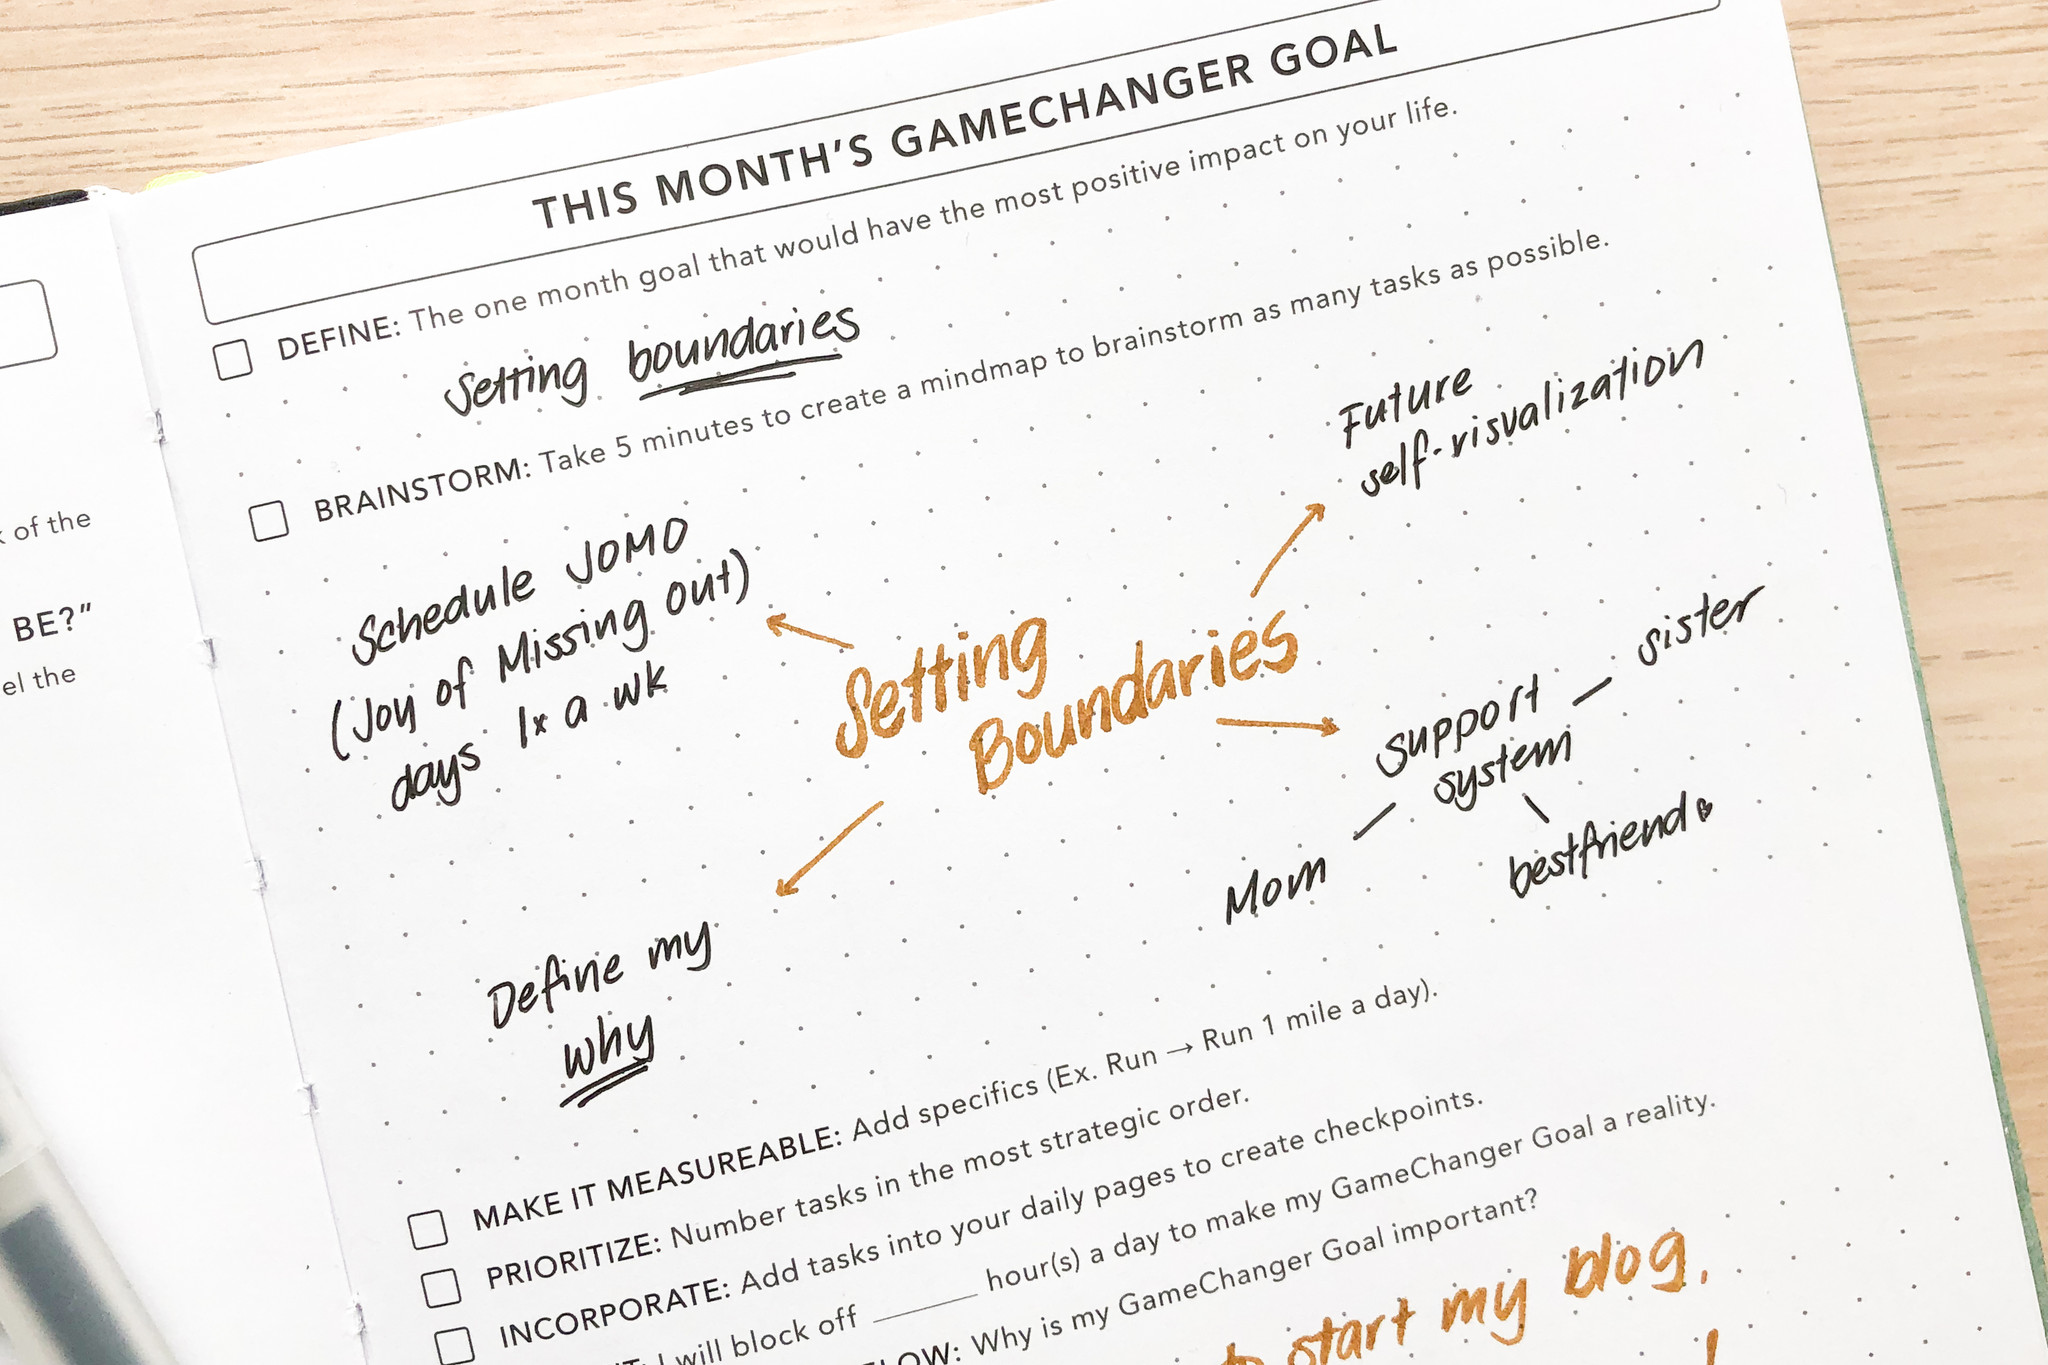 THIS MONTH'S GAMECHANGER GOAL
DEFINE: The one month goal that would have the most positive impact on your life.
Setting boundaries
BRAINSTORM: Take 5 minutes to create a mindmap to brainstorm as many tasks as possible.
Schedule JOMO
(Joy of Missing out)
days 1x a wk
Future
self-visualization
Setting
Boundaries
Support
system
sister
Mom
bestfriend
Define my
why
MAKE IT MEASUREABLE: Add specifics (Ex. Run → Run 1 mile a day).
PRIORITIZE: Number tasks in the most strategic order.
INCORPORATE: Add tasks into your daily pages to create checkpoints.
I will block off ______ hour(s) a day to make my GameChanger Goal a reality.
Why is my GameChanger Goal important?
to start my blog.
of the
BE?"
the